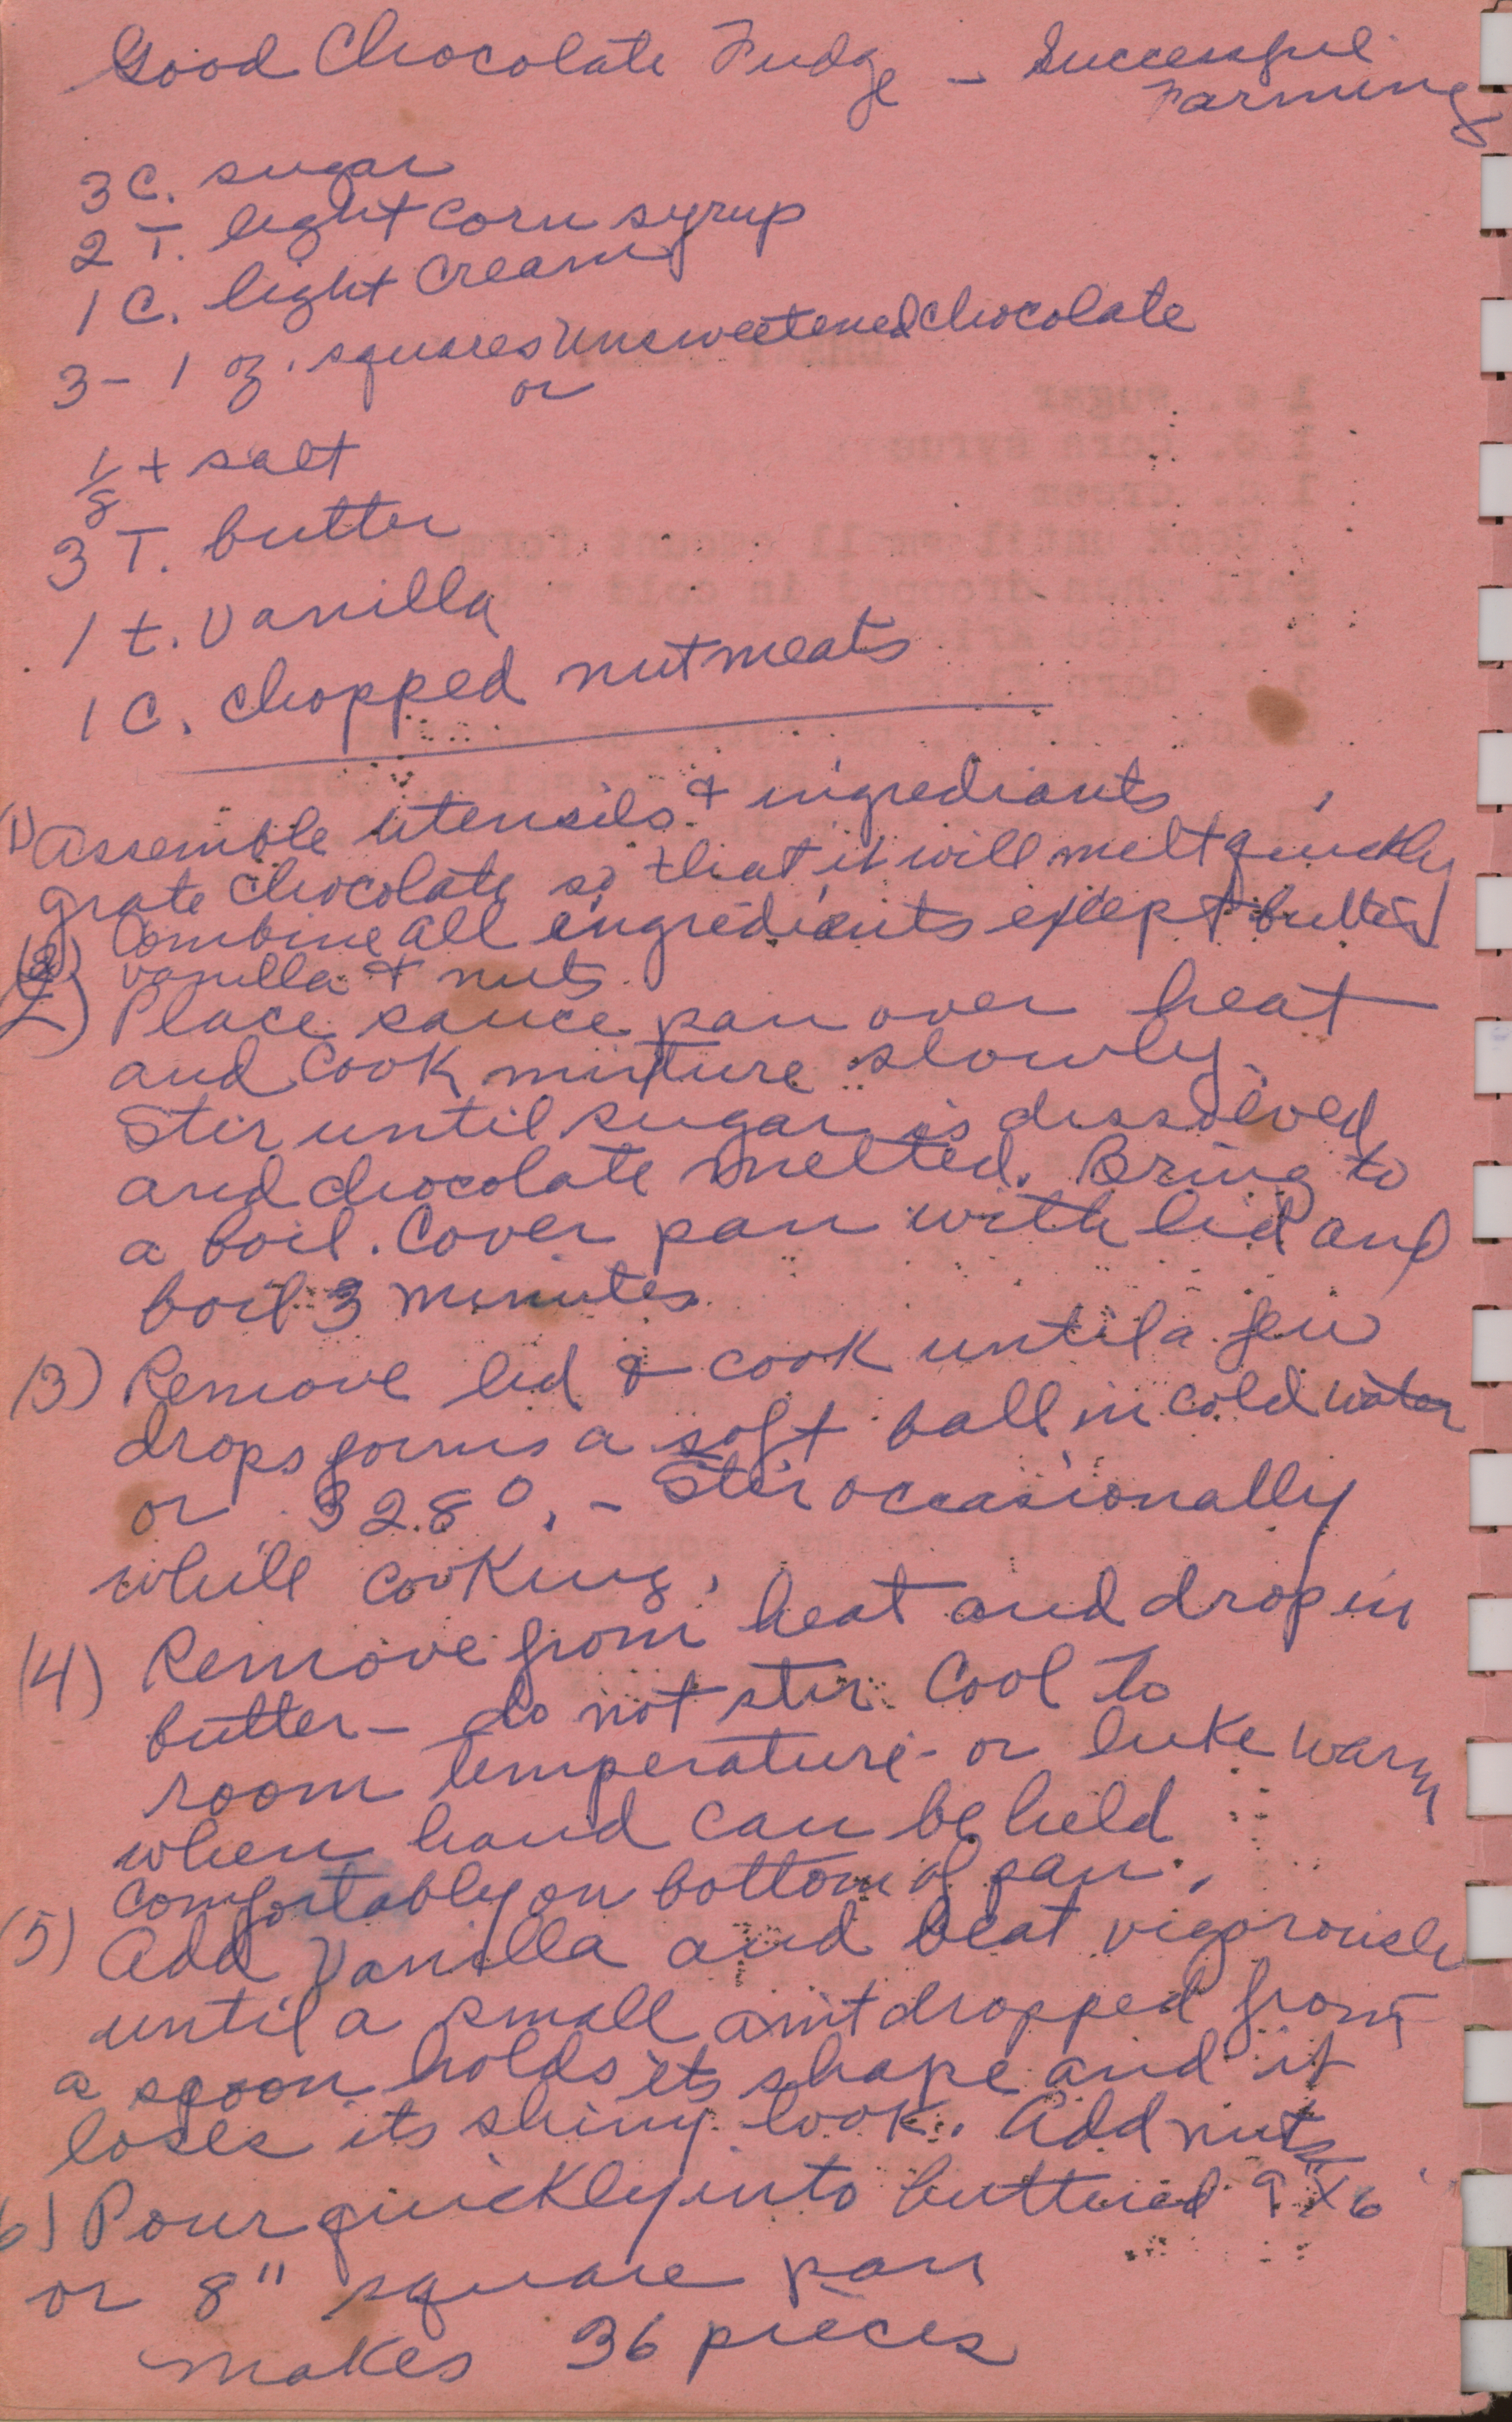 Good Chocolate Fudge - Successful
Farming
3 C. sugar
2 T. light corn syrup
1 C. light cream
3 - 1 oz. squares unsweetened chocolate
or
1/8 t salt
3 T. butter
1 t. vanilla
1 C. chopped nutmeats
(1) Assemble utensils & ingrediants
grate chocolate so that it will melt quickly
(2) Combine all ingredients except butter
vanilla & nuts.
Place sauce pan over heat
and cook mixture slowly.
Stir until sugar is dissolved
and chocolate melted. Bring to
a boil. Cover pan with lid and
boil 3 minutes
(3) Remove lid & cook until a few
drops forms a soft ball in cold water
or 328°. - Stir occasionally
while cooking.
(4) Remove from heat and drop in
butter - do not stir. Cool to
room temperature - or luke warm
when hand can be held
comfortably on bottom of pan.
(5) Add Vanilla and beat vigorously
until a small amt dropped from
a spoon holds its shape and it
loses its shiny look. Add nuts
6) Pour quickly into buttered 9x6
or 8" square pan
makes 36 pieces